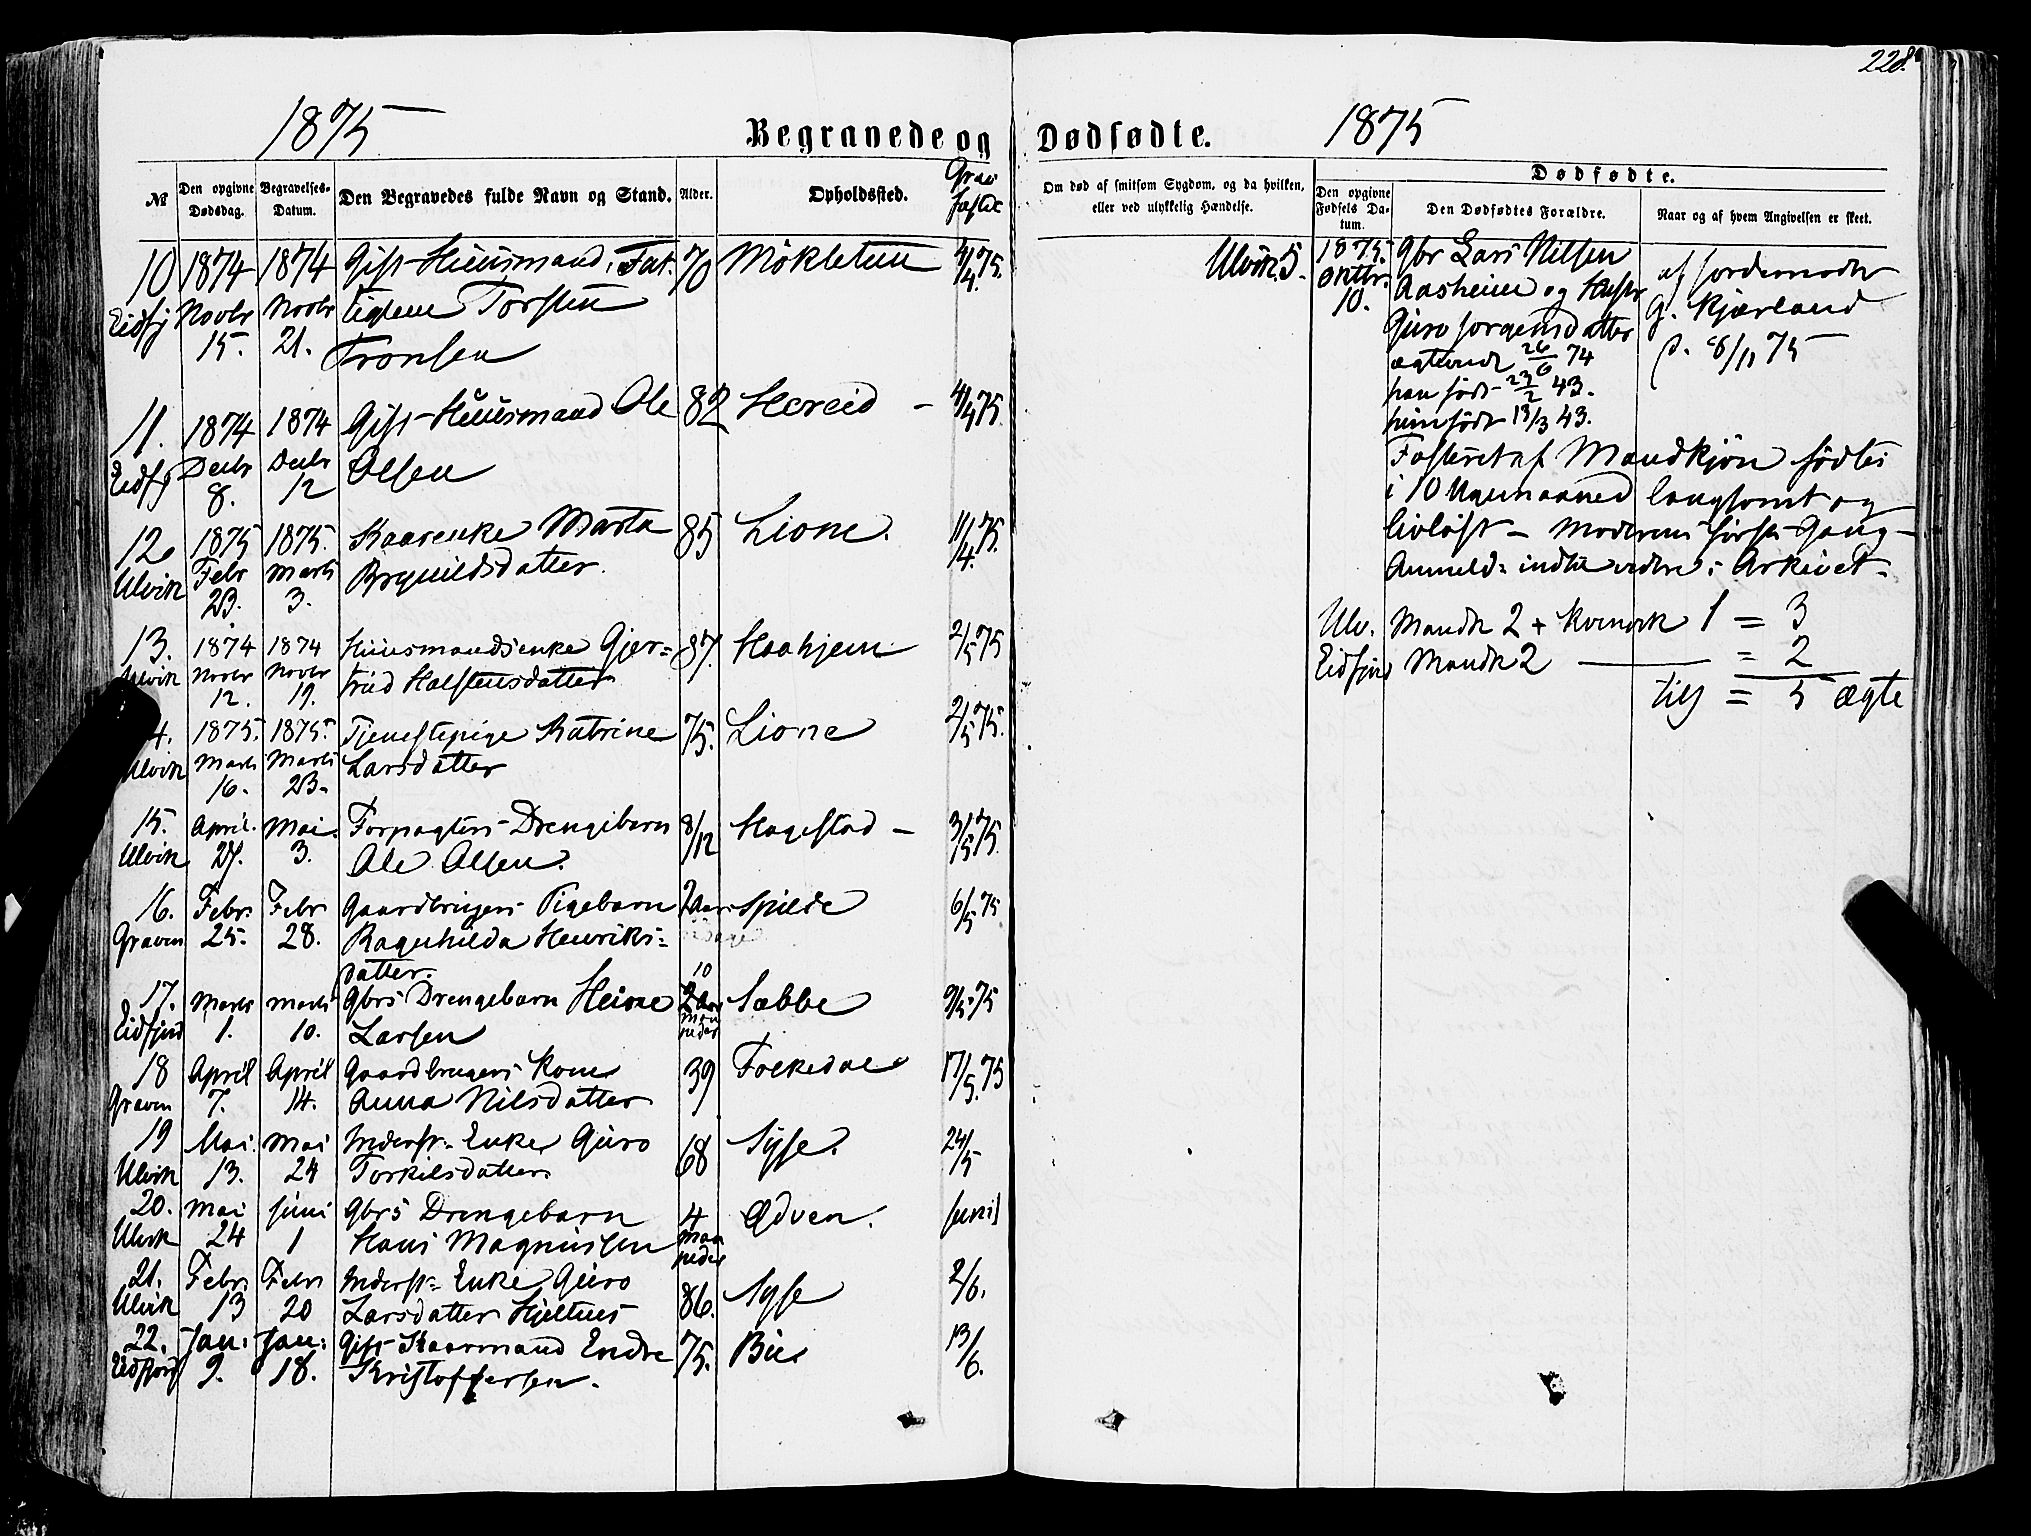 228.
1875
Begravede og
Dødfødte.
1875
№
Den opgivne Dødsdag.
Begravelses-Datum.
Den Begravedes fulde Navn og Stand.
Alder.
Opholdssted.
Grav fæstet
Om død af smitsom Sygdom, og da hvilken,
eller ved ulykkelig Hændelse.
Dødfødte.
Den opgivne Fødsels Datum.
Den Dødfødtes Forældre.
Naar og af hvem Angivelsen er skeet.
10 1874 1874 Gift Huusmand, Fat- 70 Møkletun 4/4 75.
Eidfj Novbr Novbr tiglem Torsten
15. 21. Tronsen
11. 1874 1874 Gift Huusmand Ole 82 Hereid – 4/4 75
Eidfj Decbr Decbr Olsen
8. 12
12. 1875 1875. Kaarenke Marta 85 Lione. 11/4 75.
Ulvik Febr Marts Brynildsdatter.
23. 3.
13. 1874 1874 Huusmandsenke Gjer- 87. Haahjem 2/5 75
Ulvik Novbr Novbr trud Halstensdatter
12. 19.
14. 1875. 1875. Tjenestepige Katrine 75. Lione 2/5 75.
Ulvik Marts Marts Larsdatter
16. 23.
15. April. Mai. Forpagters Drengebarn 8/12 Hagestad – 3/5 75
Ulvik 27. 3. Ole Olsen.
16. Febr. Febr Gaardbrugers Pigebarn 2 Aar Spilde 6/5 75
Graven 25. 28. Ragnhilda Henriks-
datter.
17. Marts Marts Gbrs Drengebarn Heine 2 Aar 10 Maaneder Sæbbe 9/5 75
Eidfjord 1. 10. Larsen
18 April April Gaardbrugers Kone 39 Folkedal 17/5 75
Graven 7. 14. Anna Nilsdatter
19 Mai. Mai Inderst- Enke Guro 68 Sysse. 24/5
Ulvik 13. 24 Torkilsdatter
20. Mai Juni Gbrs Drengebarn 4 Maaneder Ædven. Juni 1
Ulvik 24 1 Hans Magnussen
21. Febr Febr Inderst- Enke Guro 86. Sysse 2/6.
Ulvik 13 20 Larsdatter Hjeltnes
22. Jan: Jan: Gift Kaarmand Endre 75. Bu 13/6.
Eidfjord 9. 18. Kristoffersen.
Ulvik 5.
1875. Oktbr. 10.
Gbr Lars Nilsen
Aasheim og Hustr
Guro Jørgensdatter
ægteviet 26/6 74
han født 23/2 43.
hun født 13/3 43.
af Jordemoder
G. Kjærland
d. 8/11 75
Fosteret af Mandkjøn fødtes
i 10 Maaned langsomt og
livløst – Moderens første Gang –
Anmeld: indlevedere i Arkivet.
Ulv. Mandk 2 + Kvindk 1 = 3
Eidfjord Mandk 2 — = 2
tils = 5 Ægte